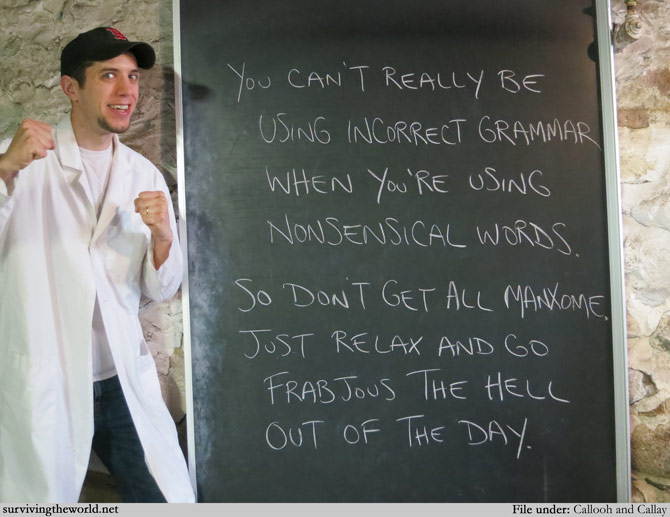 YOU CAN'T REALLY BE
USING INCORRECT GRAMMAR
WHEN YOU'RE USING
NONSENSICAL WORDS.
SO DON'T GET ALL MANXOME.
JUST RELAX AND GO
FRABJOUS THE HELL
OUT OF THE DAY.
survivingtheworld.net File under: Callooh and Callay